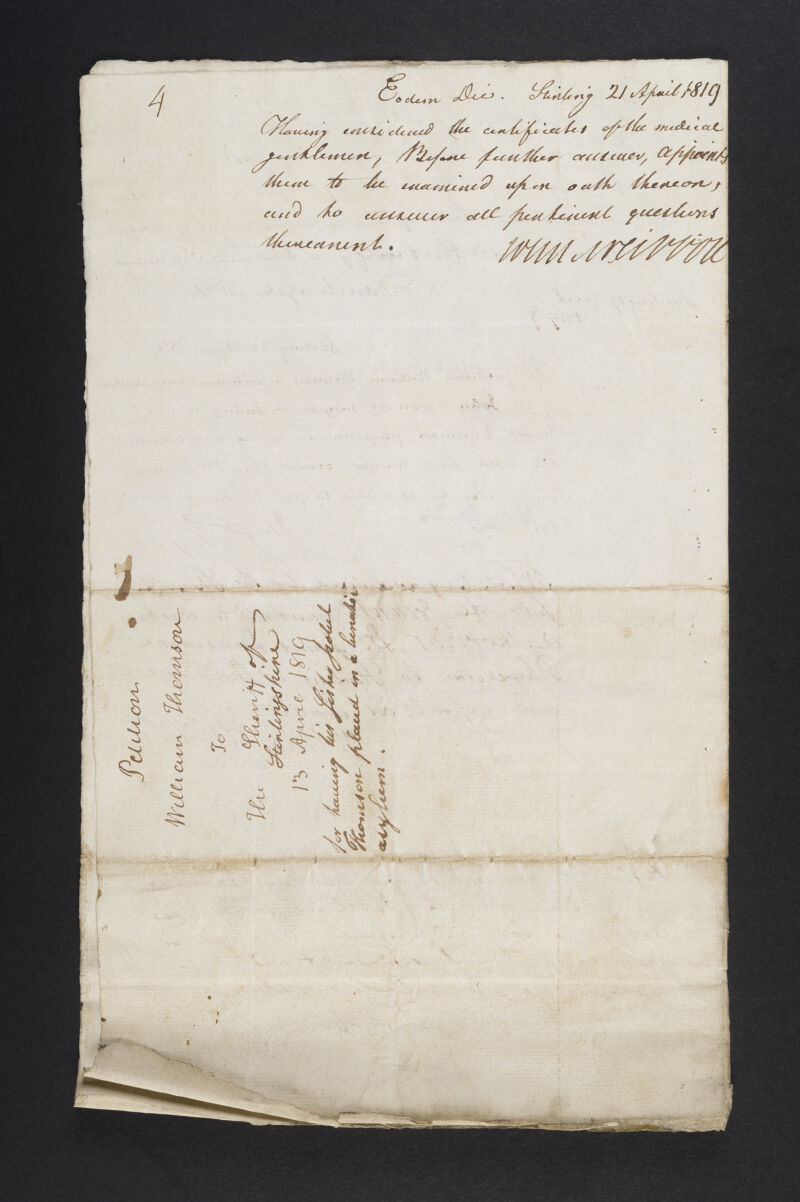 4
Eodem Die. Stirling 21 April 1819
Having considered the certificates of the medical
gentlemen, Before further answer, appoints
them to be examined upon oath thereon,
and to answer all pertinent questions
thereanent.
Petition
William Thomson
To
The Sheriff of
Stirlingshire
13 April 1819
for having his Sister Isobel
Thomson placed in a lunatic
asylum.